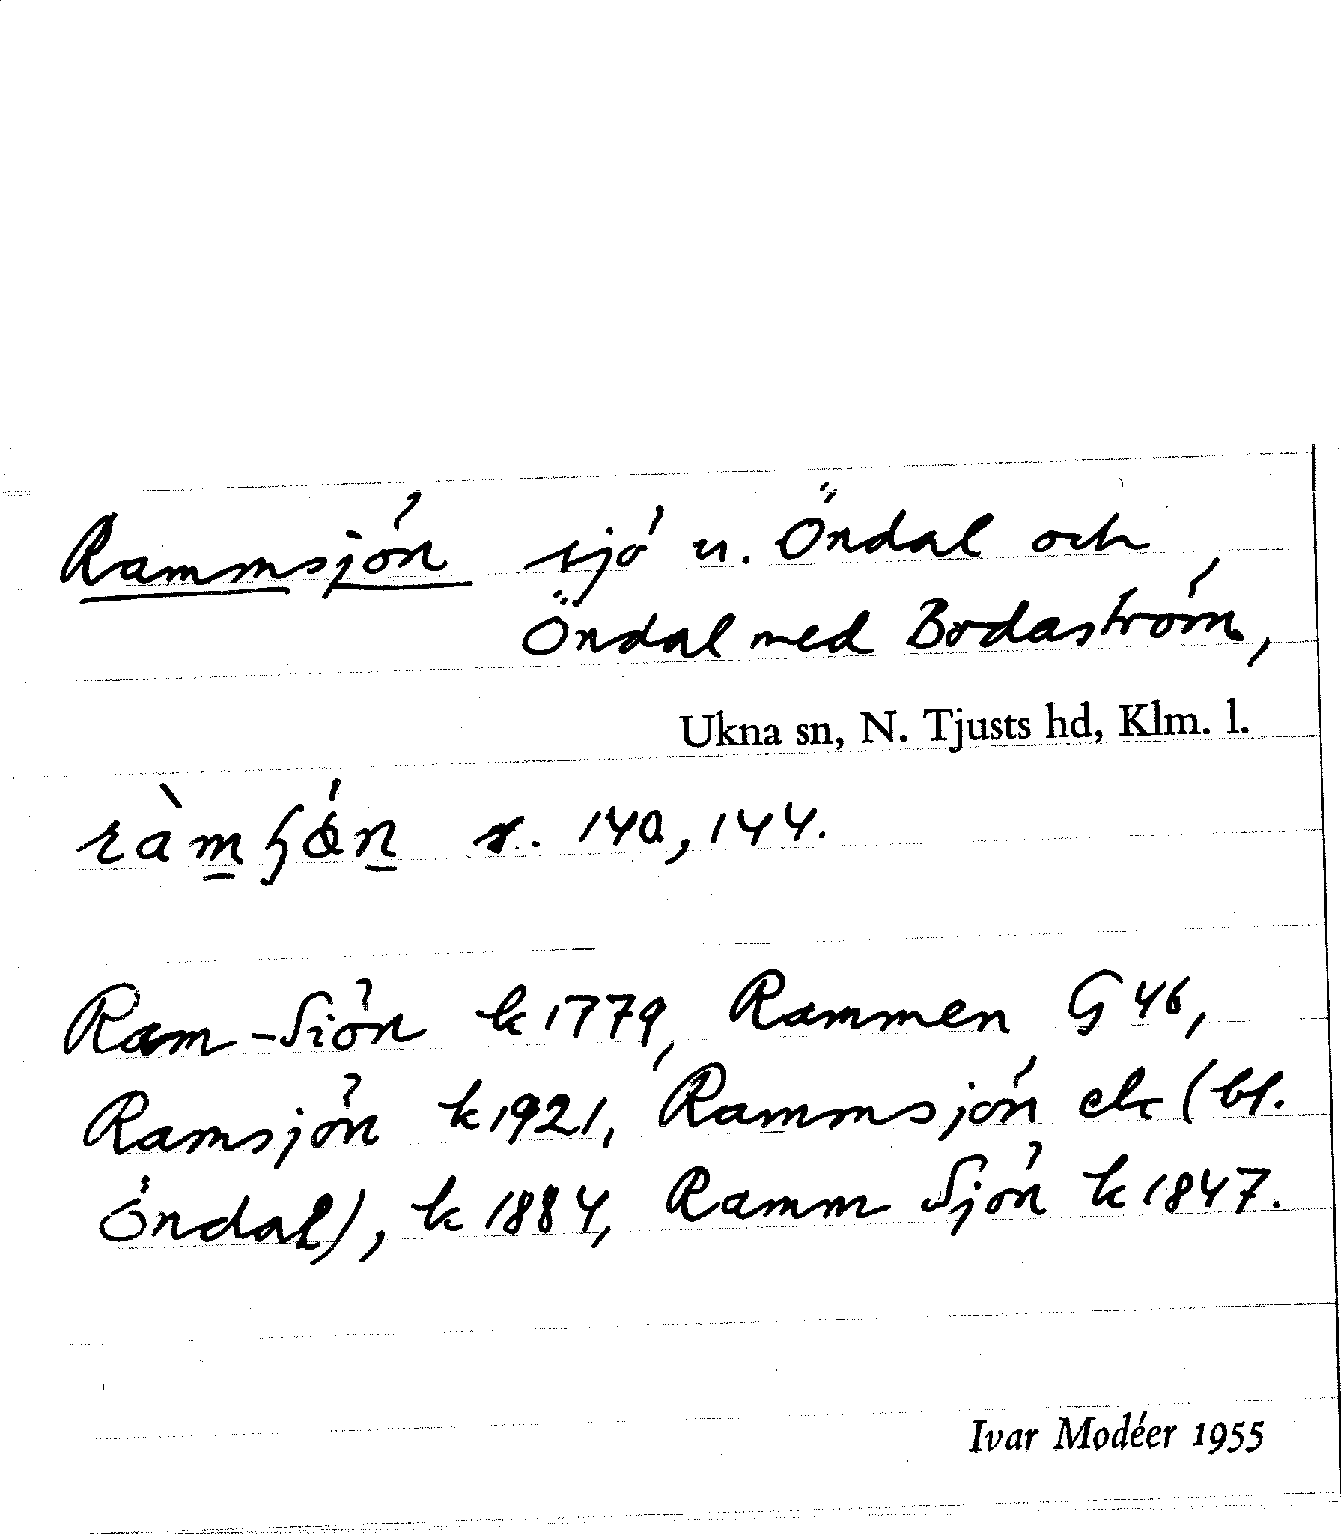 Rammsjön sjö u. Öndal och
Öndal med Bodaström,
Ukna sn, N. Tjusts hd, Klm. l.
s. 140, 144.
Ram-Siön k 1779, Rammen G 46,
Ramsjön k 1921, Rammsjön ek (bl.
Öndal), k 1884, Ramm Sjön k 1847.
Ivar Modéer 1955